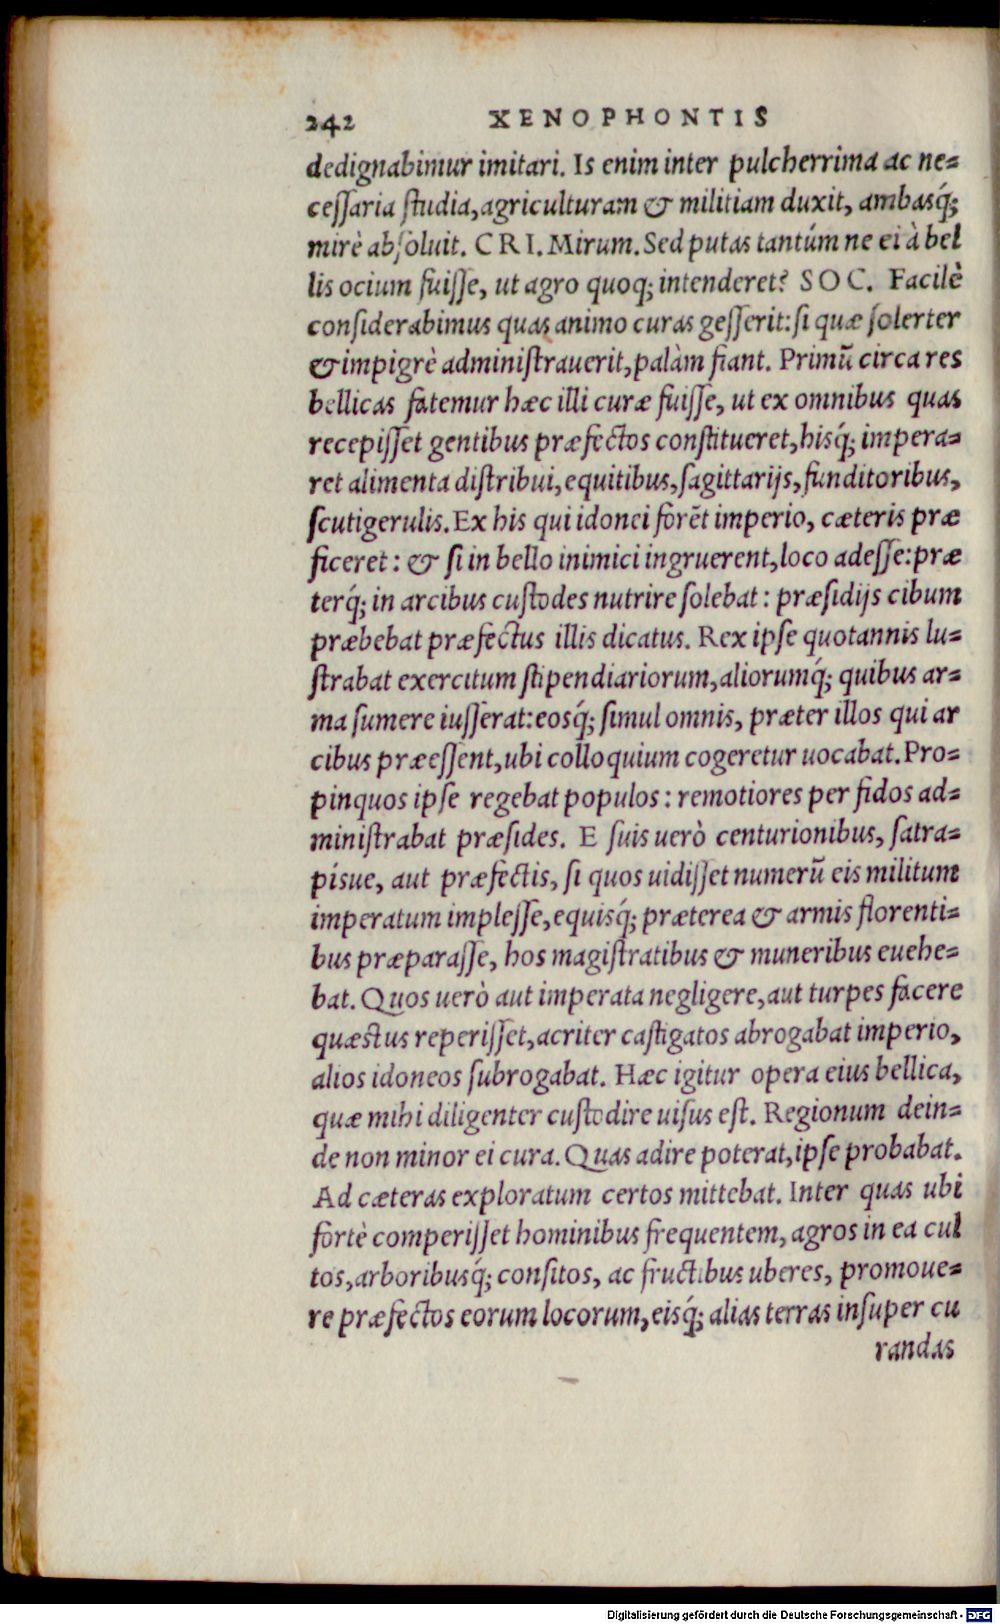 242 XENOPHONTIS
dedignabimur imitari. Is enim inter pulcherrima ac ne=
ceſſaria ſtudia, agriculturam & militiam duxit, ambasq́;
mirè abſoluit. CRI. Mirum. Sed putas tantúm ne ei à bel
lis ocium fuiſſe, ut agro quoq; intenderet? SOC. Facilè
conſiderabimus quas animo curas geſſerit: ſi quæ ſolerter
& impigrè adminiſtrauerit, palàm fiant. Primũ circa res
bellicas fatemur hæc illi curæ fuiſſe, ut ex omnibus quas
recepiſſet gentibus præfectos conſtitueret, hisq́; impera=
ret alimenta diſtribui, equitibus, ſagittarijs, funditoribus,
ſcutigerulis. Ex his qui idonei forẽt imperio, cæteris præ
ficeret: & ſi in bello inimici ingruerent, loco adeſſe: præ
terq́; in arcibus cuſtodes nutrire ſolebat: præſidijs cibum
præbebat præfectus illis dicatus. Rex ipſe quotannis lu=
ſtrabat exercitum ſtipendiariorum, aliorumq́; quibus ar=
ma ſumere iuſſerat: eosq́; ſimul omnis, præter illos qui ar
cibus præeſſent, ubi colloquium cogeretur uocabat. Pro=
pinquos ipſe regebat populos: remotiores per fidos ad=
miniſtrabat præſides. E ſuis uerò centurionibus, ſatra=
pisue, aut præfectis, ſi quos uidiſſet numerũ eis militum
imperatum impleſſe, equisq́; præterea & armis florenti=
bus præparaſſe, hos magiſtratibus & muneribus euehe=
bat. Quos uerò aut imperata negligere, aut turpes facere
quæstus reperiſſet, acriter caſtigatos abrogabat imperio,
alios idoneos ſubrogabat. Hæc igitur opera eius bellica,
quæ mihi diligenter cuſtodire uiſus eſt. Regionum dein=
de non minor ei cura. Quas adire poterat, ipſe probabat.
Ad cæteras exploratum certos mittebat. Inter quas ubi
fortè comperiſſet hominibus frequentem, agros in ea cul
tos, arboribusq́; conſitos, ac fructibus uberes, promoue=
re præfectos eorum locorum, eisq́; alias terras inſuper cu
randas
Digitalisierung gefördert durch die Deutsche Forschungsgemeinschaft - DFG